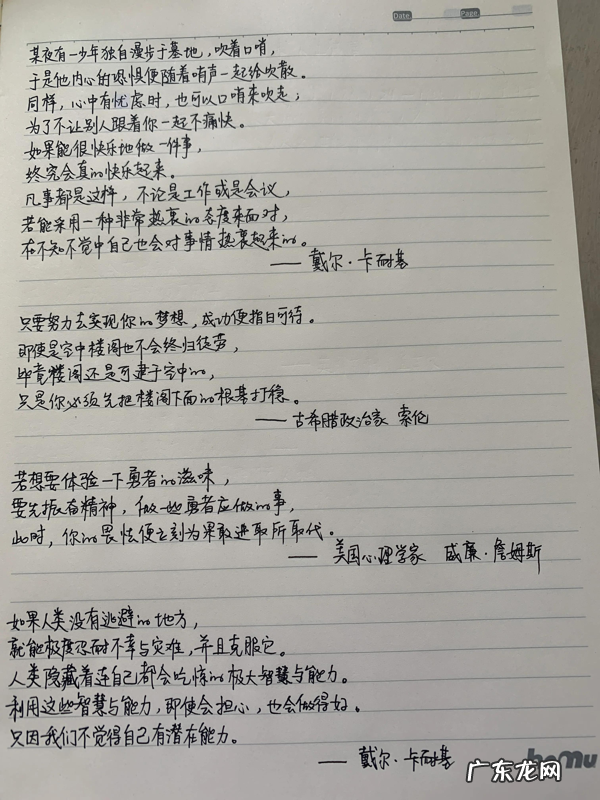 Date Page
某夜有一少年独自漫步于墓地，吹着口哨，
于是他内心的恐惧便随着哨声一起给吹散。
同样，心中有忧虑时，也可以口哨来吹走；
为了不让别人跟着你一起不痛快。
如果能很快乐地做一件事，
终究会真的快乐起来。
凡事都是这样，不论是工作或是会议，
若能采用一种非常热衷的态度来面对，
在不知不觉中自己也会对事情热衷起来的。
——戴尔·卡耐基
只要努力去实现你的梦想，成功便指日可待。
即使是空中楼阁也不会终归徒劳，
毕竟楼阁还是可建于空中的，
只是你必须先把楼阁下面的根基打稳。
——古希腊政治家 索伦
若想要体验一下勇者的滋味，
要先振奋精神，做一些勇者应做的事，
此时，你的畏怯便立刻为果敢进取所取代。
——美国心理学家 威廉·詹姆斯
如果人类没有逃避的地方，
就能极度忍耐不幸与灾难，并且克服它。
人类隐藏着连自己都会吃惊的极大智慧与能力。
利用这些智慧与能力，即使会担心，也会做得好。
只因我们不觉得自己有潜在能力。
——戴尔·卡耐基
广东龙网